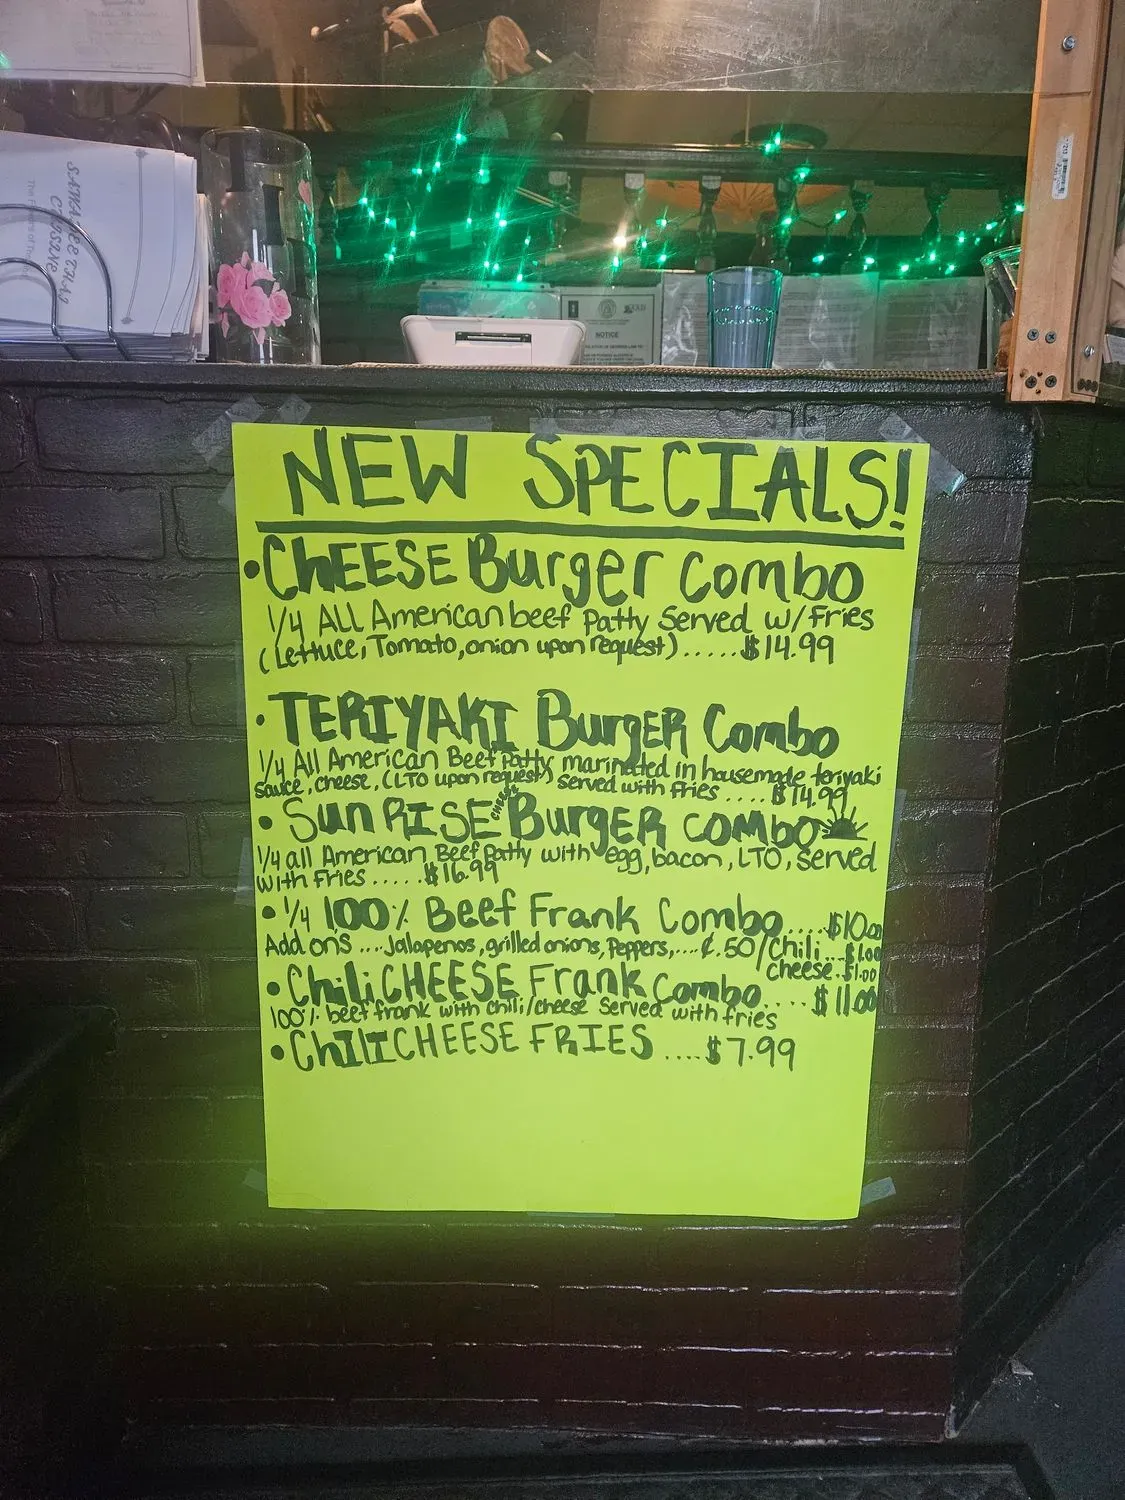 SAWADEE THAI
CUISINE
The Flavors of
NOTICE
NEW SPECIALS!
•ChEESE Burger Combo
1/4 ALL American beef Patty Served w/Fries
(Lettuce, Tomato, onion upon request) ..... $14.99
•TERIYAKI BurgER Combo
1/4 All American Beef Patty marinated in housemade teriyaki
sauce, cheese, (LTO upon request) served with fries .... $14.99
•SunRISE cheese BurgER COMBO
1/4 all American Beef Patty with egg, bacon, LTO, served
with fries ..... $16.99
•1/4 100% Beef Frank Combo .... $10.00
Add ons ... Jalapenos, grilled onions, Peppers, ... ¢.50/Chili ... $1.00
cheese . $1.00
•ChiliCHEESE Frank Combo .... $11.00
100% beef frank with chili/cheese Served with fries
•ChILICHEESE FRIES .... $7.99